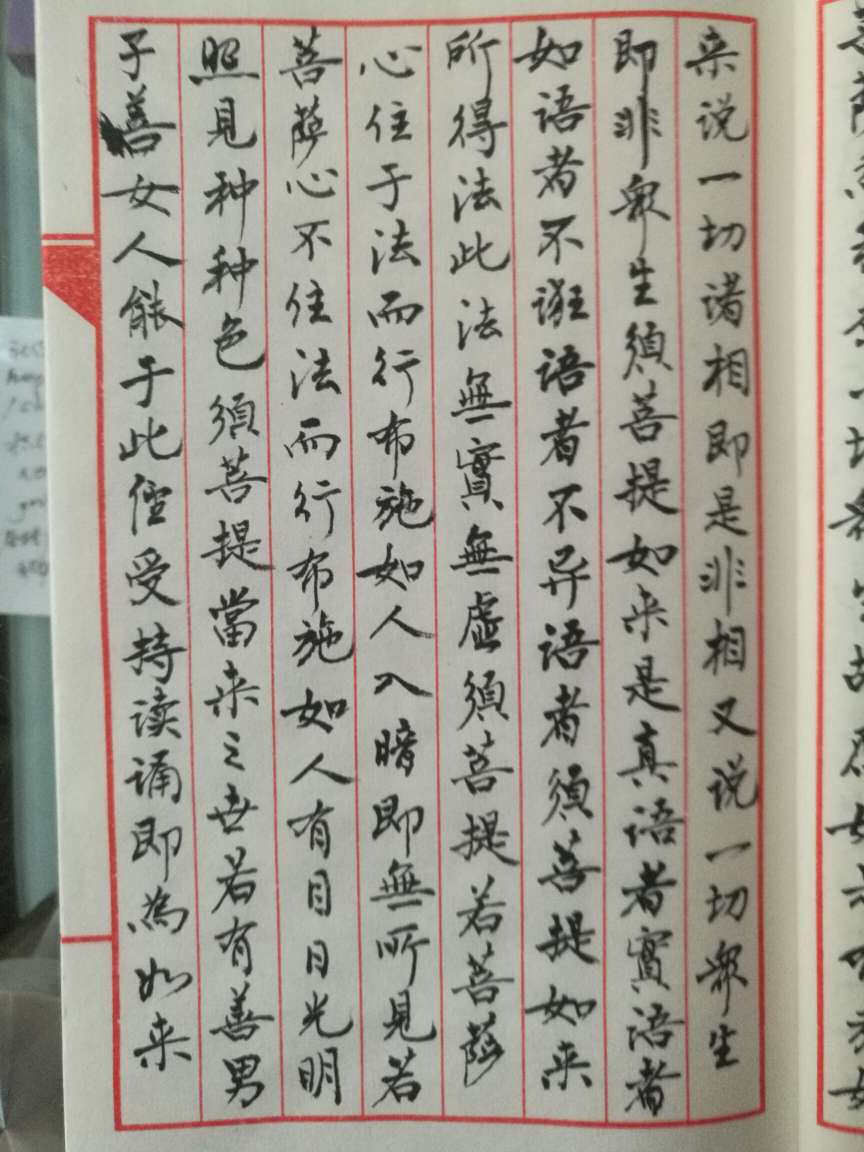 来说一切诸相即是非相又说一切衆生
即非衆生须菩提如来是真语者實语者
如语者不诳语者不异语者须菩提如来
所得法此法無實無虚须菩提若菩萨
心住于法而行布施如人入暗即無所見若
菩萨心不住法而行布施如人有目日光明
照見种种色须菩提當来之世若有善男
子善女人能于此經受持读诵即為如来